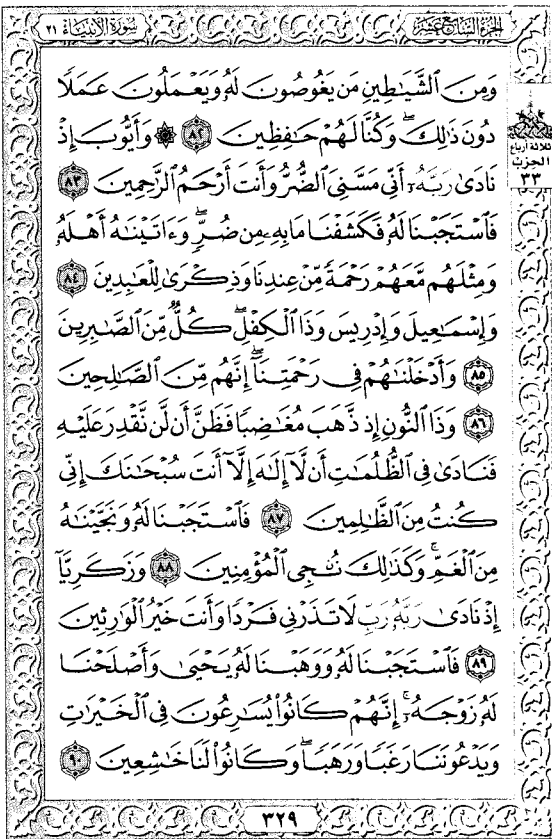 الجزء السابع عشر
سورة الأنبياء ٢١
ثلاثة أرباع
الحزب
٣٣
وَمِنَ ٱلشَّيَٰطِينِ مَن يَغُوصُونَ لَهُۥ وَيَعْمَلُونَ عَمَلًا
دُونَ ذَٰلِكَ ۖ وَكُنَّا لَهُمْ حَٰفِظِينَ ٨٢ ۞ وَأَيُّوبَ إِذْ
نَادَىٰ رَبَّهُۥٓ أَنِّى مَسَّنِىَ ٱلضُّرُّ وَأَنتَ أَرْحَمُ ٱلرَّٰحِمِينَ ٨٣
فَٱسْتَجَبْنَا لَهُۥ فَكَشَفْنَا مَا بِهِۦ مِن ضُرٍّ ۖ وَءَاتَيْنَٰهُ أَهْلَهُۥ
وَمِثْلَهُم مَّعَهُمْ رَحْمَةً مِّنْ عِندِنَا وَذِكْرَىٰ لِلْعَٰبِدِينَ ٨٤
وَإِسْمَٰعِيلَ وَإِدْرِيسَ وَذَا ٱلْكِفْلِ ۖ كُلٌّ مِّنَ ٱلصَّٰبِرِينَ
٨٥ وَأَدْخَلْنَٰهُمْ فِى رَحْمَتِنَآ ۖ إِنَّهُم مِّنَ ٱلصَّٰلِحِينَ
٨٦ وَذَا ٱلنُّونِ إِذ ذَّهَبَ مُغَٰضِبًا فَظَنَّ أَن لَّن نَّقْدِرَ عَلَيْهِ
فَنَادَىٰ فِى ٱلظُّلُمَٰتِ أَن لَّآ إِلَٰهَ إِلَّآ أَنتَ سُبْحَٰنَكَ إِنِّى
كُنتُ مِنَ ٱلظَّٰلِمِينَ ٨٧ فَٱسْتَجَبْنَا لَهُۥ وَنَجَّيْنَٰهُ
مِنَ ٱلْغَمِّ ۚ وَكَذَٰلِكَ نُۨجِى ٱلْمُؤْمِنِينَ ٨٨ وَزَكَرِيَّآ
إِذْ نَادَىٰ رَبَّهُۥ رَبِّ لَا تَذَرْنِى فَرْدًا وَأَنتَ خَيْرُ ٱلْوَٰرِثِينَ
٨٩ فَٱسْتَجَبْنَا لَهُۥ وَوَهَبْنَا لَهُۥ يَحْيَىٰ وَأَصْلَحْنَا
لَهُۥ زَوْجَهُۥٓ ۚ إِنَّهُمْ كَانُوا۟ يُسَٰرِعُونَ فِى ٱلْخَيْرَٰتِ
وَيَدْعُونَنَا رَغَبًا وَرَهَبًا ۖ وَكَانُوا۟ لَنَا خَٰشِعِينَ ٩٠
٣٢٩